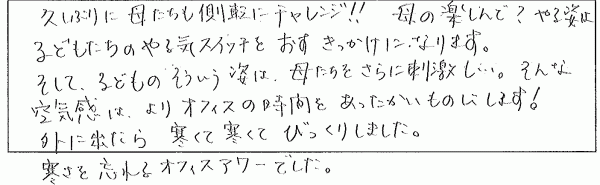 久しぶりに母たちも側転にチャレンジ!! 母の楽しんで?やる姿は
子どもたちのやる気スイッチをおすきっかけになります。
そして、子どものそういう姿は、母たちをさらに刺激し…。そんな
空気感は、よりオフィスの時間をあったかいものにします!
外に出たら 寒くて寒くて びっくりしました。
寒さを忘れるオフィスアワーでした。